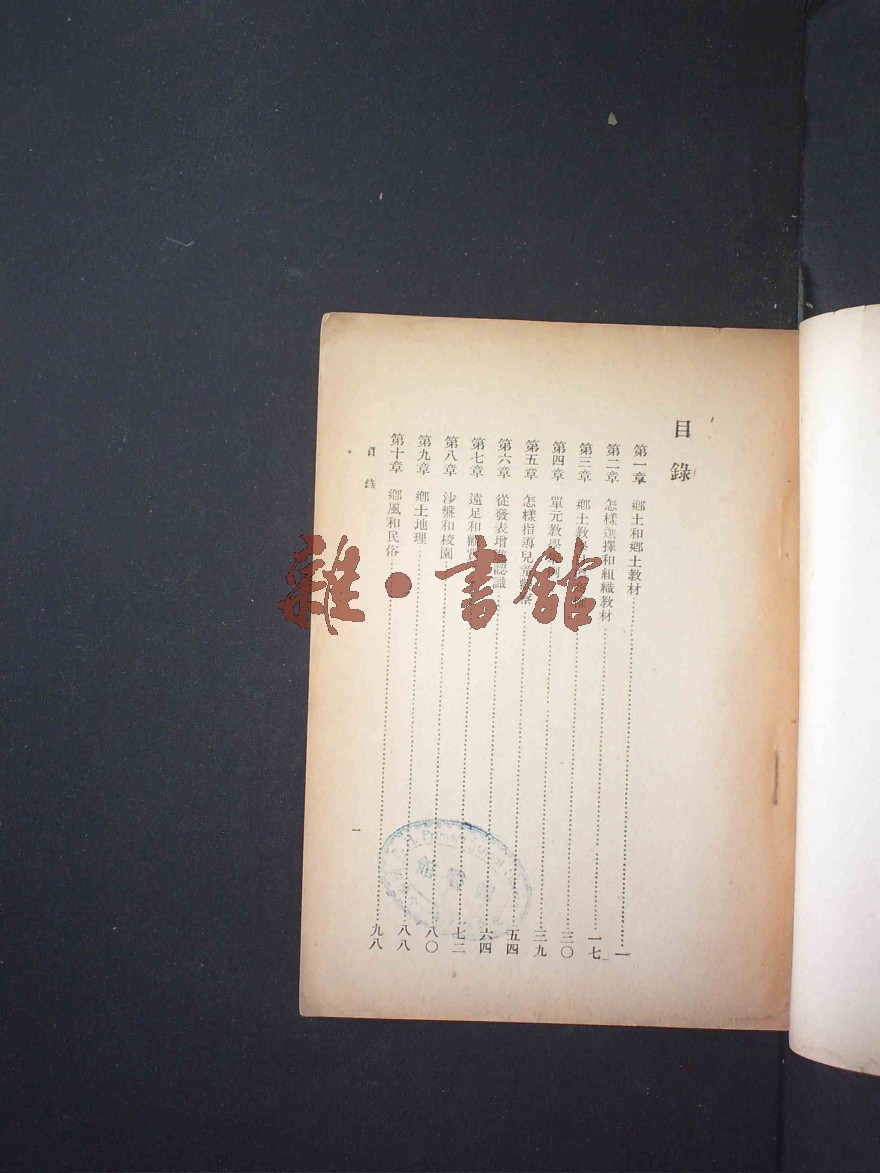 目錄
第一章 鄉土和鄉土教材 一
第二章 怎樣選擇和組織教材 一七
第三章 鄉土教 三〇
第四章 單元教學 三九
第五章 怎樣指導兒童 五四
第六章 從發表增 認識 六四
第七章 遠足和 七二
第八章 沙盤和校園 八〇
第九章 鄉土地理 八八
第十章 鄉風和民俗 九八
目錄
一
雜·書館